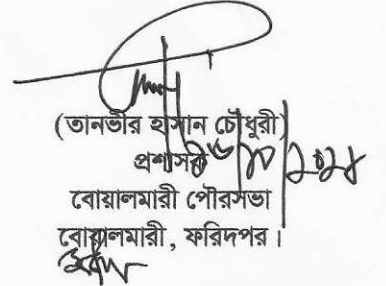 (তানভীর হাসান চৌধুরী)
প্রশাসক
বোয়ালমারী পৌরসভা
বোয়ালমারী, ফরিদপর।